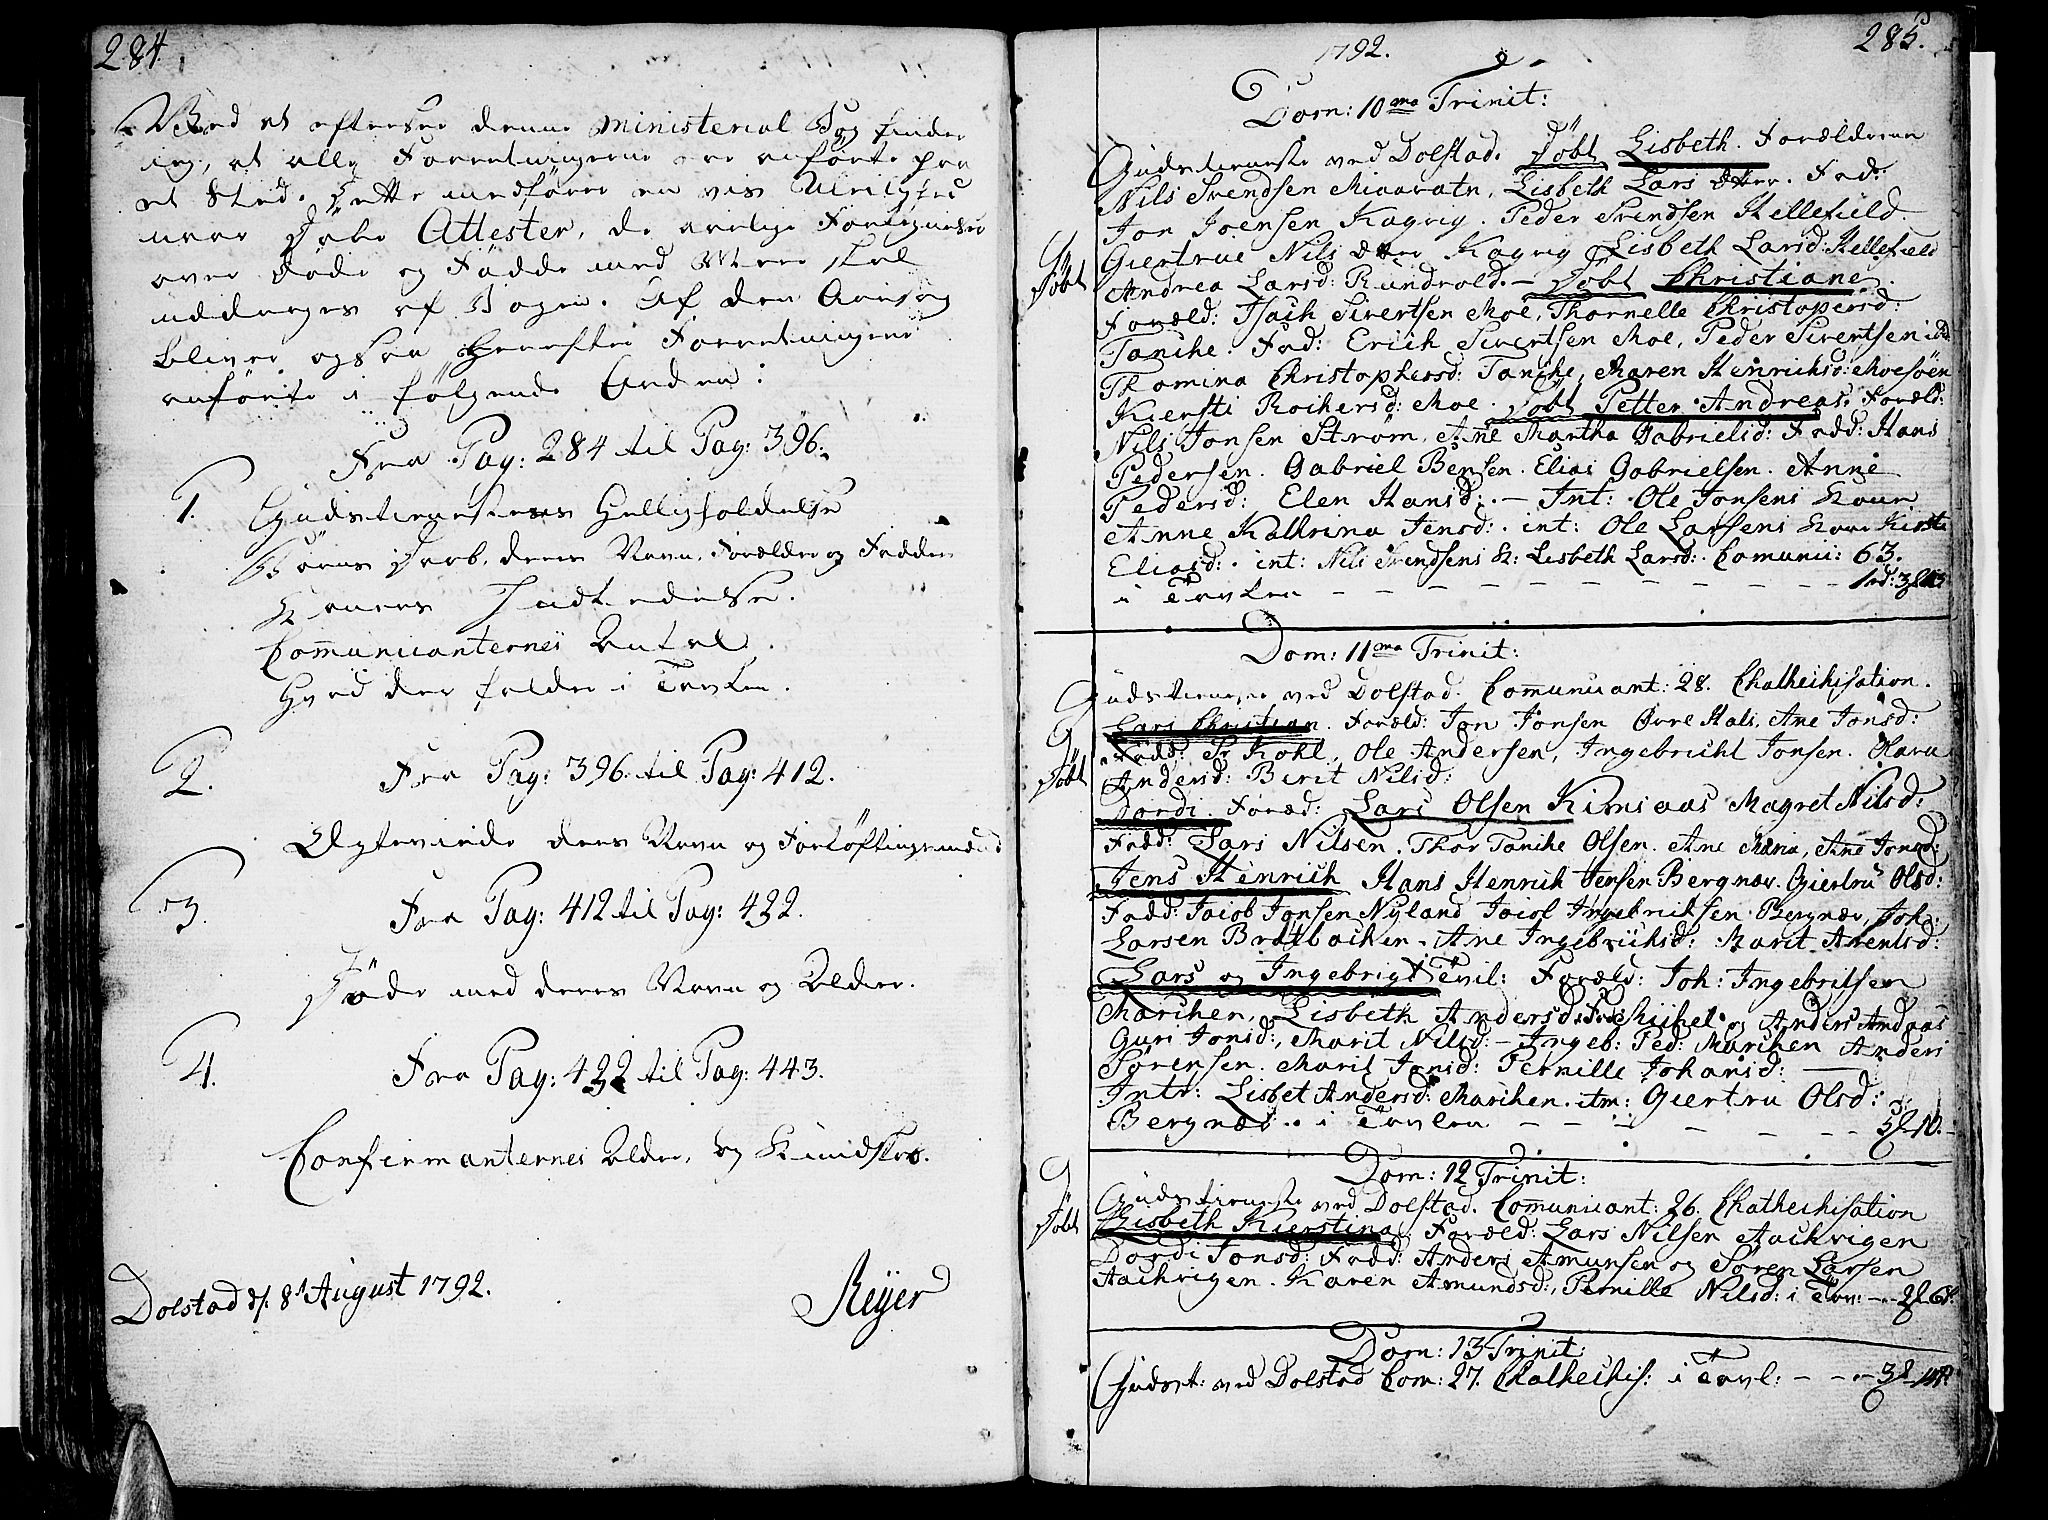 284.
Ved at eftersee denne Ministerial Bog finder
jeg, at alle Forretningerne ere anførte paa
et Sted. Dette medfører en vis
naar Døbe Attester, de aarlige Fortegnelser
over Døde og Fødde med Meere skal
uddrages af Bogen. Af den Aarsag
bliver ogsaa herefter Forretningerne
anførte i følgende Orden:
Fra Pag: 284 til Pag: 396.
1. Gudstienestens Helligholdelse
Børns Daab, deres Navn, Forældre og Faddere
Koners Indledelse.
Communicanternes Antal.
Hvad der falder i Tavlen.
2. Fra Pag: 396. til Pag: 412.
Ægteviede deres Navn og
3. Fra Pag: 412 til Pag: 422.
Døde med deres Navn og Alder.
4. Fra Pag: 422 til Pag: 443.
Confirmanternes Alder, og Kundskab.
Dolstad d. 8 August 1792.
Reÿer
1792.
285.
Dom: 10ma Trinit:
Gudstieneste ved Dolstad. Døbt Lisbeth. Forælderne
Nils Svendsen Miaavatn, Lisbeth Lars Dtter. Fad:
Jon Joensen Kagvig. Peder Svendsen Hellefield.
Giertrue Nils Dtter Kagvig Lisbeth Larsd: Hellefield
Døbt
Andrea Larsd: . - Døbt Christiane.
Foræld: Isach Sivertsen Moe, Thornelle Christopersd:
Tanche. Fad: Erich Sivertsen Moe, Peder Sivertsen ibd
Thomina Christophersd: Tanche, Maren Henrichsd: Moesøen
Kiersti Rochersd: Moe. Døbt Petter Andreas. Foræld:
Nils Jonsen Strøm, Ane Martha Gabrielsd: Fadd: Hans
Pedersen. Gabriel Bensen. Elias Gabrielsen. Anne
Pedersd: Elen Hansd: - Int: Ole Jonsens Kone
Anne Kathrina Jensd: int: Ole Larsens Kone Kirsti
Eliasd: int: Nils Svendsens K: Lisbeth Larsd: Comunic: 63.
i Tavlen
Dom: 11ma Trinit:
Gudstieneste ved Dolstad. Communicant: 28. Chathechisation.
Lars Christian. Foræld: Jon Jonsen Øvre Hals, Ane Jonsd:
Døbt
Fadd: Sr Kohl, Ole Andersen, Ingebricht Jonsen.
Andersd: Berit Nilsd:
Dordi. Foræld: Lars Olsen Kirnsaas Magret Nilsd:
Fadd: Lars Nilsen. Thor Tanche Olsen. Ane Maria, Ane Jonsd:
Jens Henrich Hans Henrich Jensen Bergnæs. Giertru Olsd:
Fadd: Jacob Jonsen Nyland Jacob Ingebrictsen Bergnæs, Joh:
Larsen Bratbachen. Ane Ingebrichsd: Marit Arentsd:
Lars og Ingebrigt Tvil: Foræld: Joh: Ingebritsen
Marichen, Lisbeth Andersd: Fad: Michel og Anders Andaas
Guri Jonsd:, Marit Nilsd: - Ingeb: Ped: Marichen Anders
Sørensen. Marit Jonsd: Pernille Johansd:
Intr: Lisbet Andersd: Marichen. itm: Giertru Olsd:
Bergnæs. i Tavlen 10.
Dom: 12 Trinit:
Gudstieneste ved Dolstad. Communicant: 26. Chathechisation
Døbt
Lisbeth Kierstina. Foræld: Lars Nilsen Aachvigen
Dordi Jonsd: Fadd: Anders Amunsen og Søren Larsen
Aachvigen. Karen Amundsd:, Pernille Nilsd: i Tav:
Dom: 13 Trinit:
Gudst: ved Dolstad Com: 27. Chathechis: i Tavl: